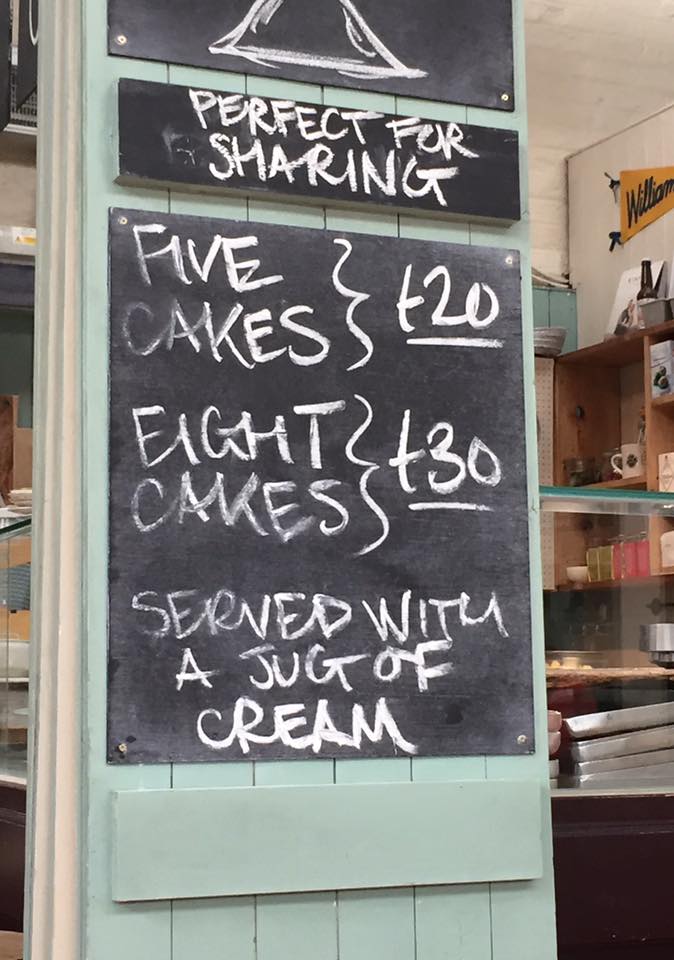 PERFECT FOR
SHARING
FIVE
CAKES } £20
EIGHT
CAKES } £30
SERVED WITH
A JUG OF
CREAM
William